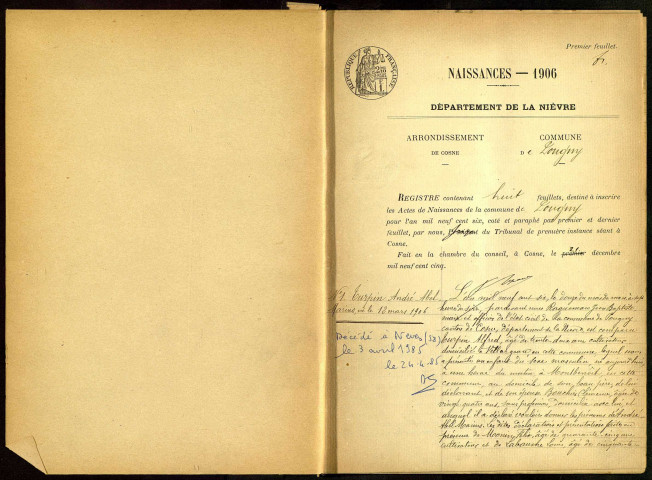 Premier feuillet.
RÉPUBLIQUE FRANÇAISE
NAISSANCES — 1906
DÉPARTEMENT DE LA NIÈVRE
ARRONDISSEMENT COMMUNE
DE COSNE DE Pougny
REGISTRE contenant huit feuillets, destiné à inscrire
les Actes de Naissances de la commune de Pougny
pour l'an mil neuf cent six, coté et paraphé par premier et dernier
feuillet, par nous, du Tribunal de première instance séant à
Cosne.
Fait en la chambre du conseil, à Cosne, le décembre
mil neuf cent cinq.
N°1 Turpin André Abel
Marius né le 12 mars 1906
Décédé à Nevers (58)
le 3 avril 1985
le 24.4.85
L'an mil neuf cent six, le douze du mois de mars à
heures du soir, pardevant nous Jean Baptiste
maire et officier de l'état civil de la commune de Pougny
canton de Cosne, département de la Nièvre, est comparu
Turpin Alfred, âgé de trente deux ans cultivateur
domicilié à en cette commune, lequel nous
a présenté un enfant du sexe masculin, né aujourd'hui
à une heure du matin, à en cette
commune, au domicile de son beau père, de lui
déclarant et de son épouse Clémence, âgée de
vingt quatre ans, sans profession, domiciliée avec lui et
auquel il a déclaré vouloir donner les prénoms d'André
Abel Marius. Les dites déclaration et présentation faites en
présence de âgé de quarante cinq ans
cultivateur et de Louis, âgé de cinquante